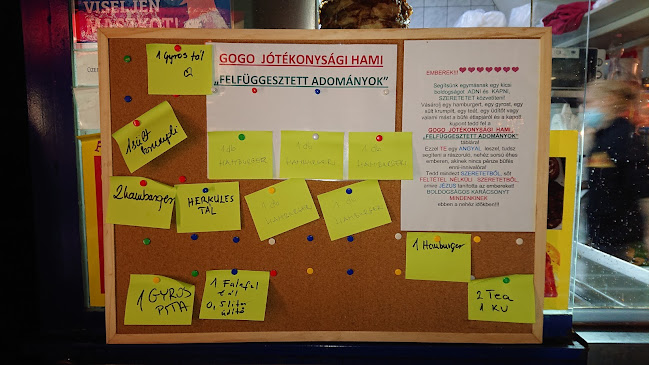 VISELJEN
MASZKOT!
GOGO JÓTÉKONYSÁGI HAMI
„FELFÜGGESZTETT ADOMÁNYOK”
EMBEREK!!!
Segítsünk egymásnak egy kicsi
boldogságot ADNI és KAPNI,
SZERETETET közvetíteni!
Vásárolj egy hamburgert, egy gyrost, egy
sült krumplit, egy teát, egy üdítőt vagy
valami mást a büfé étlapjáról és a kapott
kupont tedd fel a
GOGO JÓTÉKONYSÁGI HAMI,
„FELFÜGGESZTETT ADOMÁNYOK”
táblára!
Ezzel TE egy ANGYAL leszel, hidsz
segíteni a rászoruló, nehéz sorsú éhes
embereken, akinek nincs pénze büfés
enni-innivalóra!
Tedd mindezt SZERETETBŐL, sőt
FELTÉTEL NÉLKÜLI SZERETETBŐL,
amire JÉZUS tanította az embereket!
BOLDOGSÁGOS KARÁCSONYT
MINDENKINEK
ebben a nehéz időkben!!!
1 Gyros tál
1 sült
2 hamburger
HERKULES
TÁL
1 db
HAMBURGER
1 db
HAMBURGER
1 db
HAMBURGER
1 db
HAMBURGER
1 db
HAMBURGER
1 GYROS
PITA
1 Falafel
tál
0,5 liter
üdítő
1 Hamburger
2 Tea
1 KV